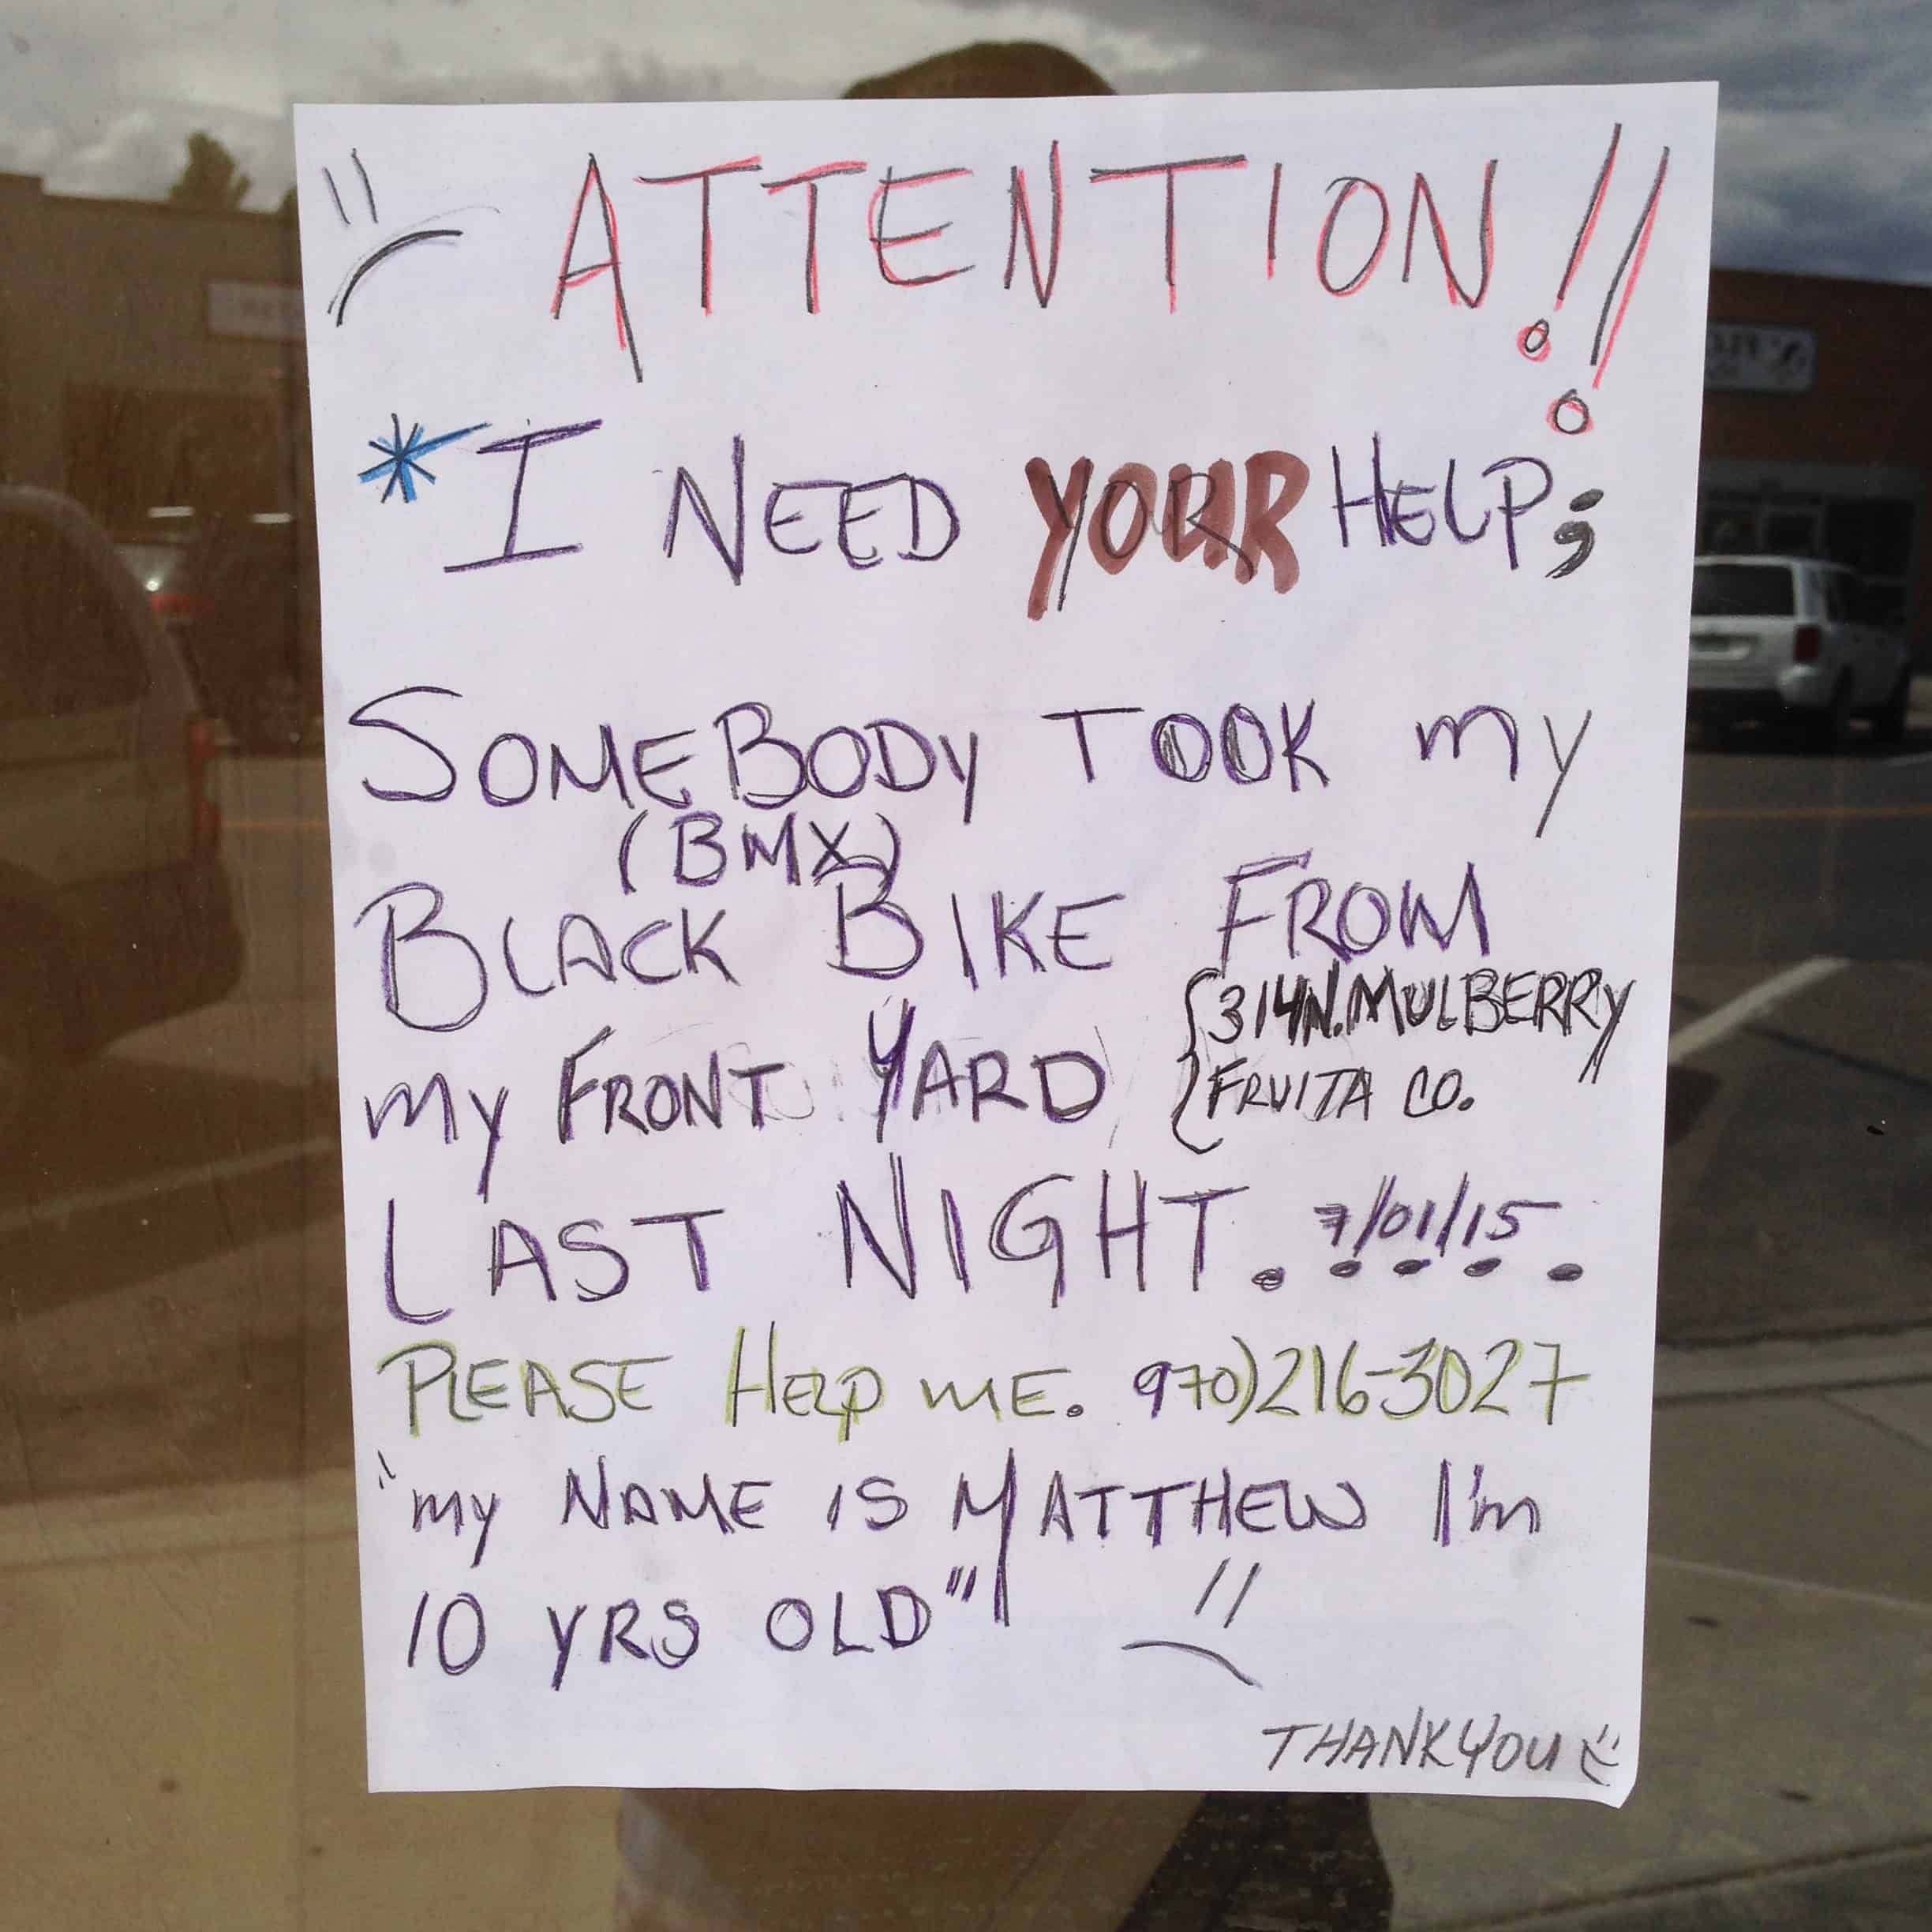 ATTENTION!!
*I NEED YOUR HELP;
SOMEBODY TOOK my
(BMX)
BLACK BIKE FROM
my FRONT YARD {314 N. MULBERRY
FRUITA CO.
LAST NIGHT. 7/01/15
PLEASE HELP ME. 970)216-3027
"my NAME IS MATTHEW I'm
10 YRS OLD"
THANK YOU